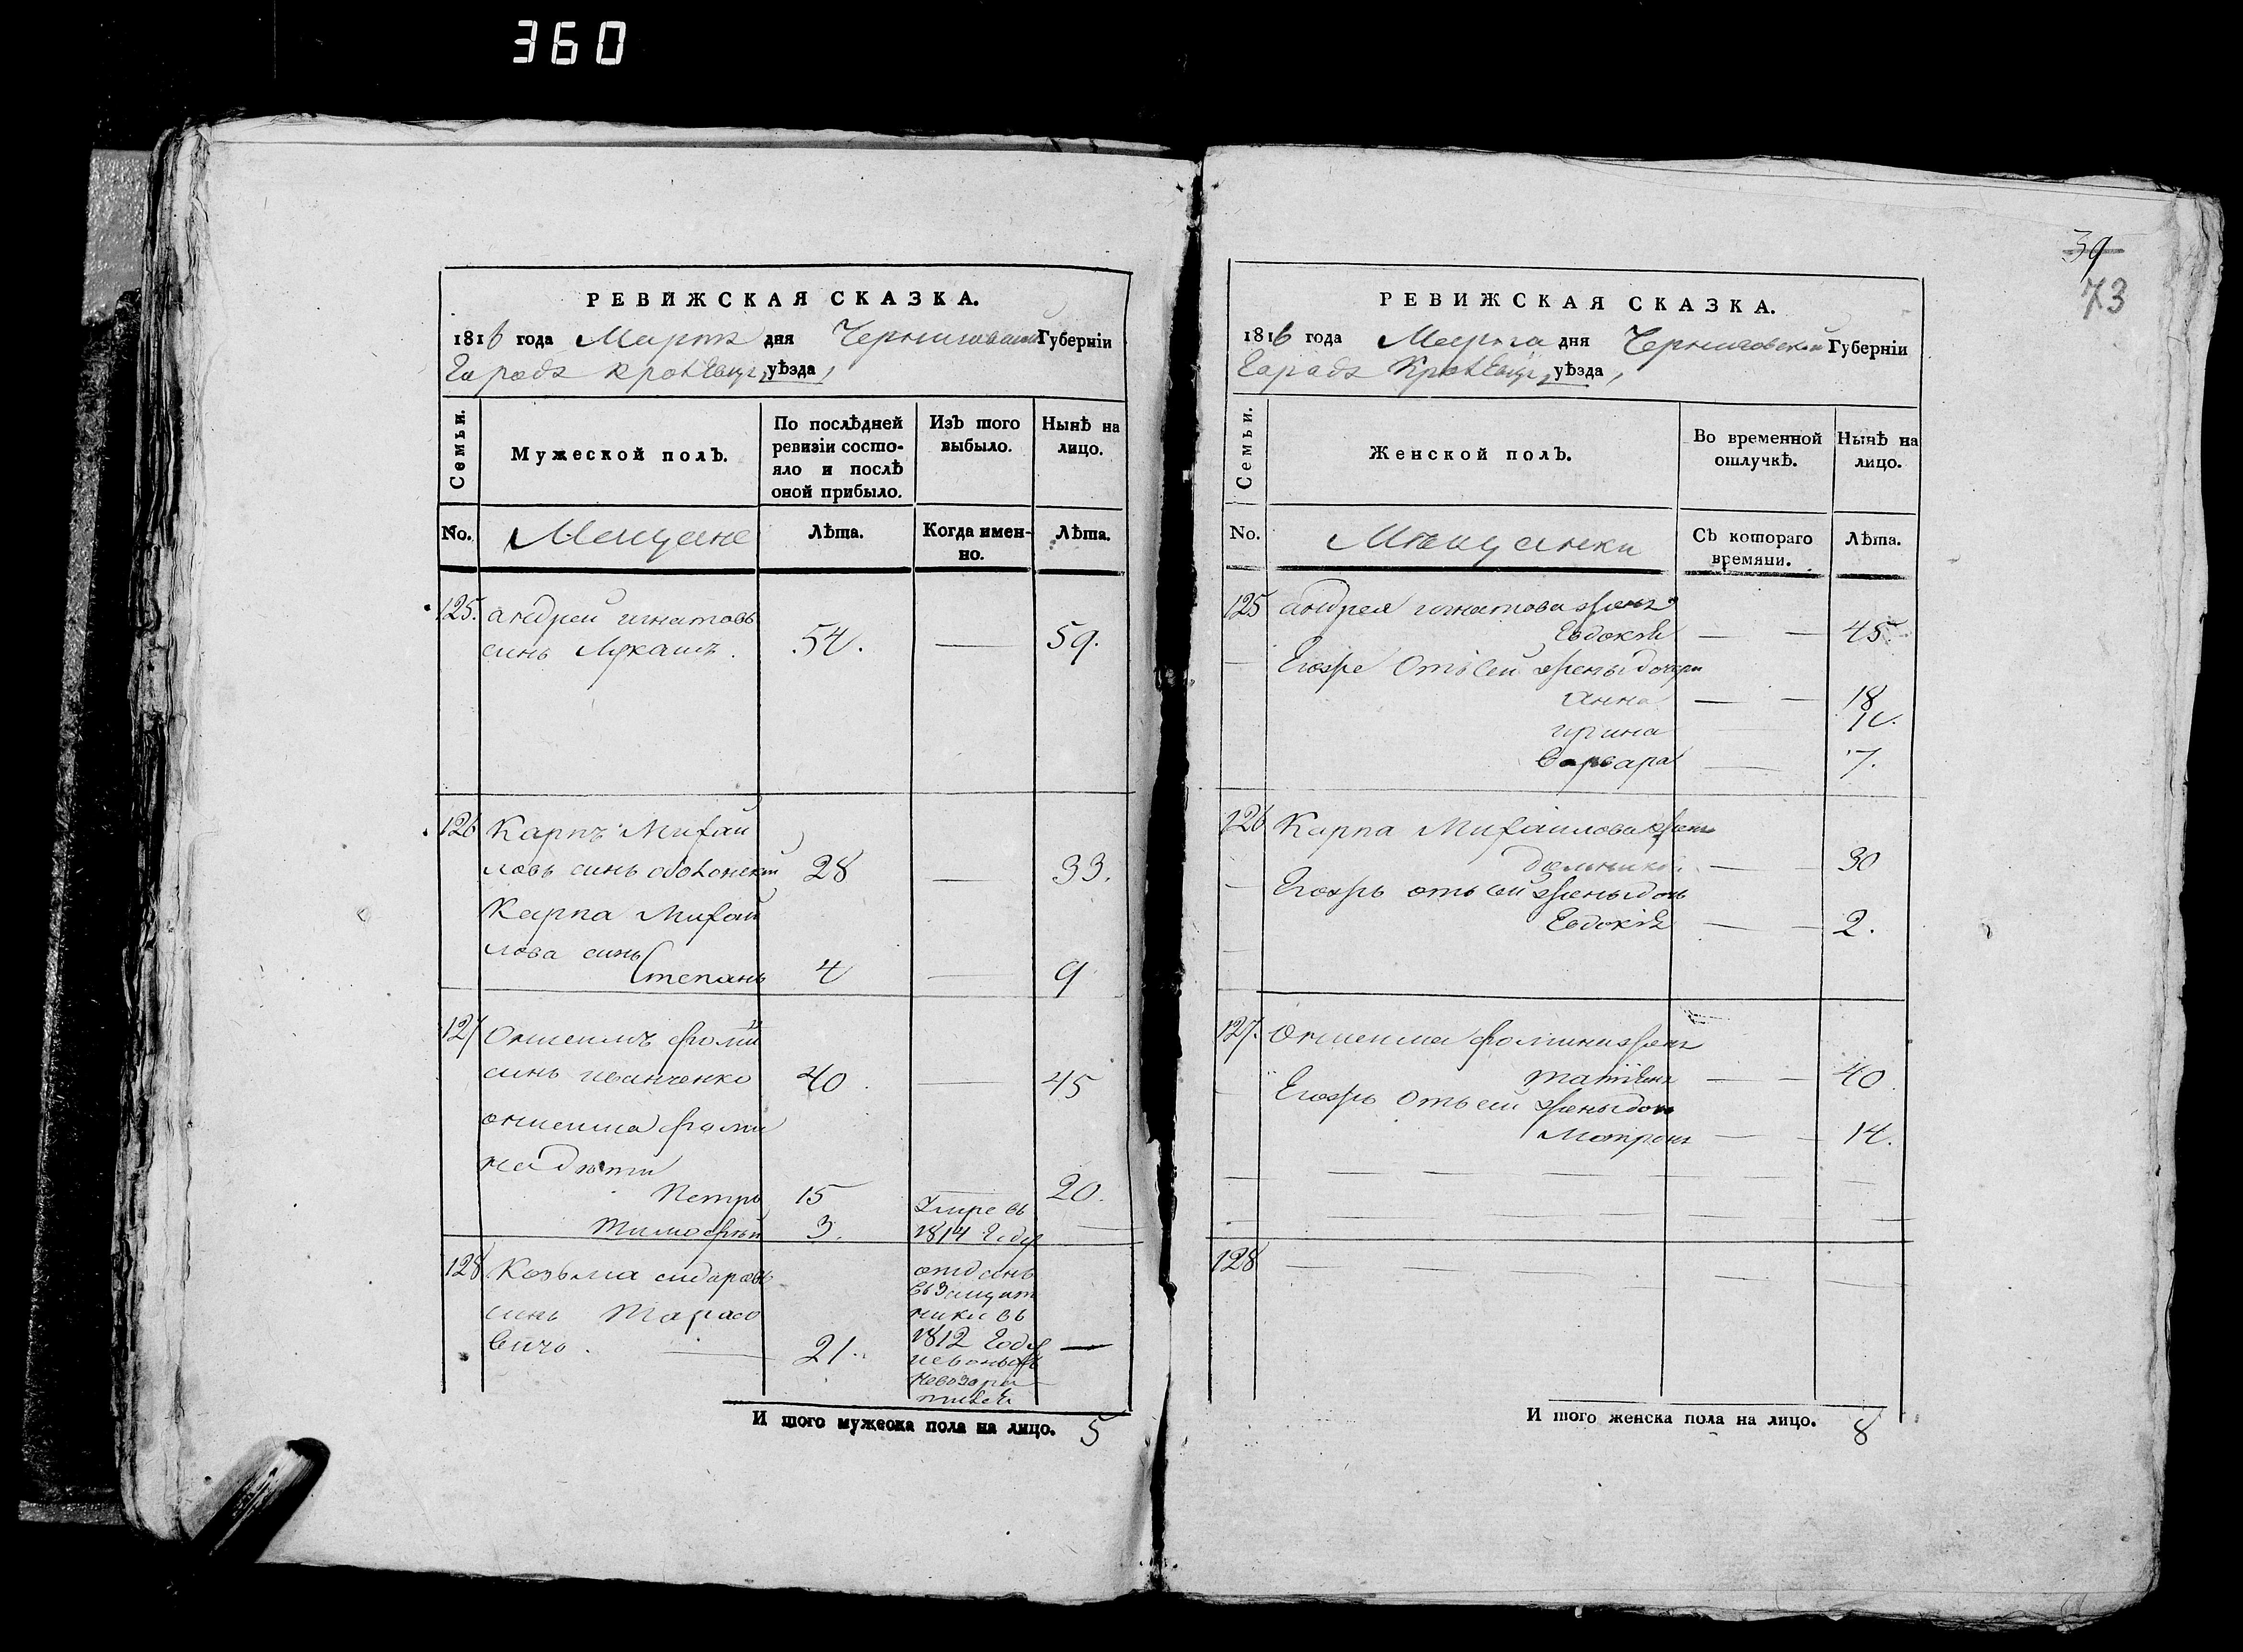 360
39
73
РЕВИЖСКАЯ СКАЗКА.
1816 года Марта дня Черниговской Губерніи
Города Кролевца уѣзда
Семьи.
Мужеской полЪ.
По послѣдней ревизіи состояло и послѣ оной прибыло.
ИзЪ того выбыло.
Нынѣ на лицо.
No.
Мещане
Лѣта.
Когда именно.
Лѣта.
125. андрей игнатовъ
синь Лукашъ. 54. — 59.
126 Карпъ Михай
ловъ синь оболонский 28 — 33.
Карпа Михай
лова синь
Степанъ 4 — 9
127 Онисимъ Фомин
синь иванченко 40 — 45
онисима фоми
на дѣти
Петръ 15 — 20.
Тимофѣй 3. Умре въ
1814 Году —
128 Козьма сидоровъ
синь Тарасо
вичъ. — 21. —
отданъ
въ
ники въ
1812 Году
И того мужеска пола на лицо. 5
РЕВИЖСКАЯ СКАЗКА.
1816 года Марта дня Черниговской Губерніи
Города Кролевца уѣзда
Семьи.
Женской полЪ.
Во временной отлучкѣ.
Нынѣ на лицо.
No.
Мѣщанки
СЪ котораго времяни.
Лѣта.
125 андрея игнатова жена
Евдокія — — 45.
Егоже отъ сей жены дочери
анна — — 18
ирина —
варвара — 7.
126 Карпа Михайлова жена
— — 30
Егожъ отъ сей жены дочь
Евдокія — — 2.
127. Онисима фомина жена
татіяна — — 40
Егожъ отъ сей жены дочь
Мотрона — — 14.
128 — — — — — —
И того женска пола на лицо. 8